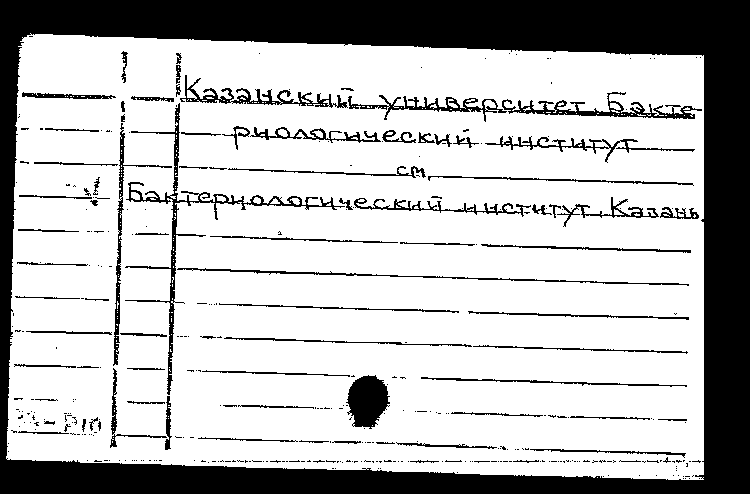 Казанский университет. Бакте-
риологический институт
см.
Бактериологический институт. Казань.